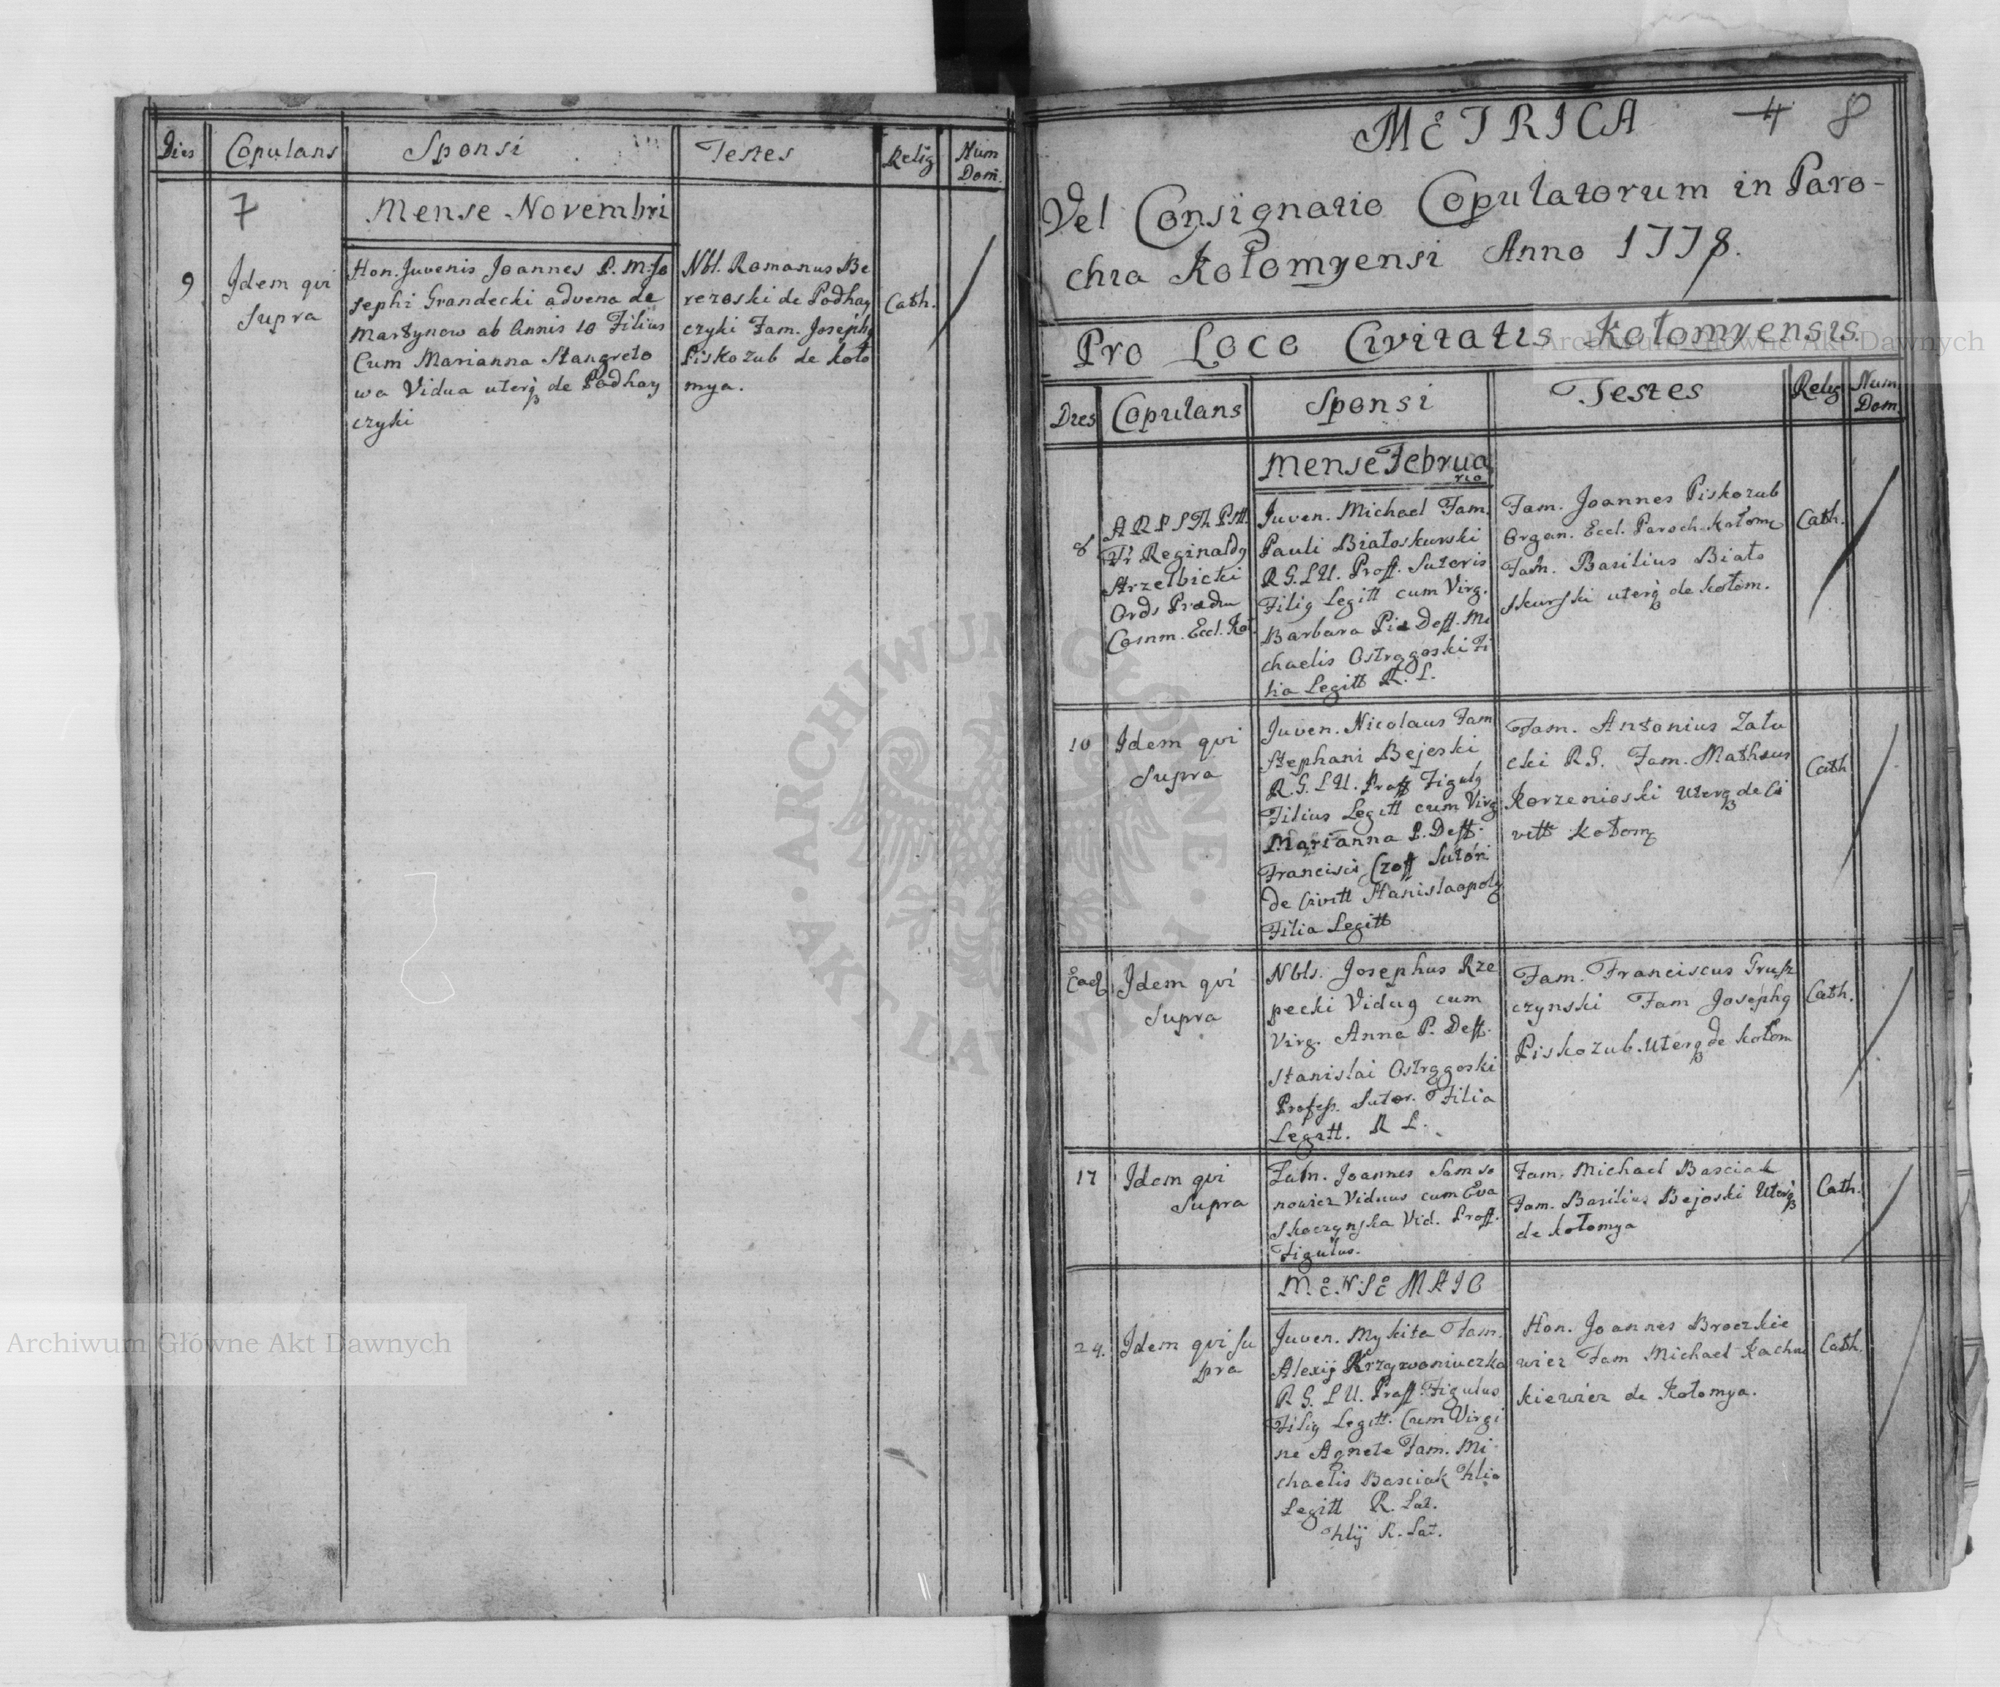 Dies Copulans Sponsi Testes Relig Num Dom.
7
Mense Novembri
9
Idem qui
supra
Hon. Juvenis Joannes P. M. Jo
sephi Grandecki advena de
Martynow ab Annis 10 Filius
Cum Marianna Stangreto
wa Vidua uterq de Podhay
czyki
Nbl. Romanus Be
rezoski de Podhay
czyki Fam. Josephq
Piskozub de Koło
mya.
Cath.
METRICA 4 8
Vel Consignatio Copulatorum in Paro-
chia Kołomyensi Anno 1778.
Pro Loco Civitatis Kołomyensis.
Dies Copulans Sponsi Testes Relig Num Dom.
Mense Februa
rio
8
A R P S Th Pstt.
Fr Reginaldq
Strzelbicki
Ords Prædm
Comm. Eccl. Koł.
Juven. Michael Fam.
Pauli Białoskurski
R.G.L.U. Proff. Sutoris
Filiq Legitt cum Virg.
Barbara Pie Deff. Mi
chaelis Ostrągoski Fi
lia Legitt R. L.
Fam. Joannes Piskozub
Organ. Eccl. Paroch. Kołom
Fam. Basilius Biało
skurski uterq de Kołom.
Cath.
10
Idem qui
supra
Juven. Nicolaus Fam
Stephani Bejoski
R.G.L.U. Proff Figulq
Filius Legitt cum Virg
Marianna P. Deff.
Francisci Czoff Sutori
de Civitt Stanislaopolq
Filia Legitt
Fam. Antonius Zału
cki R.G. Fam. Matheus
Korzenioski Uterq de Ci
vitt Kołom
Cath
Ead.
Idem qui
supra
Nbls. Josephus Rze
pecki Viduq cum
Virg. Anna P. Deff.
Stanislai Ostrągoski
Profess. Sutor. Filia
Legitt. R L.
Fam. Franciscus Grusz
czynski Fam Josephq
Piskozub. Uterq de Kołom
Cath.
17
Idem qui
supra
Fam. Joannes Samso
nowicz Viduus cum Eva
Skoczynska Vid. Proff.
Figulus.
Fam. Michael Basciak
Fam. Basilius Bejoski Uterq
de Kołomya
Cath.
MENSE MAIO
24.
Idem qui su
pra
Juven. Mykita Fam.
Alexij Krzyzwaniuczka
R.G. L U. Proff. Figulus
Filiq Legitt. Cum Virgi
ne Agnete Fam. Mi
chaelis Basciak Filia
Legitt R. Lat.
Filij R. Lat.
Hon. Joannes Broczkie
wicz Fam Michael Kachni
kiewicz de Kołomya.
Cath.
Archiwum Główne Akt Dawnych
Archiwum Główne Akt Dawnych
ARCHIWUM GŁÓWNE AKT DAWNYCH